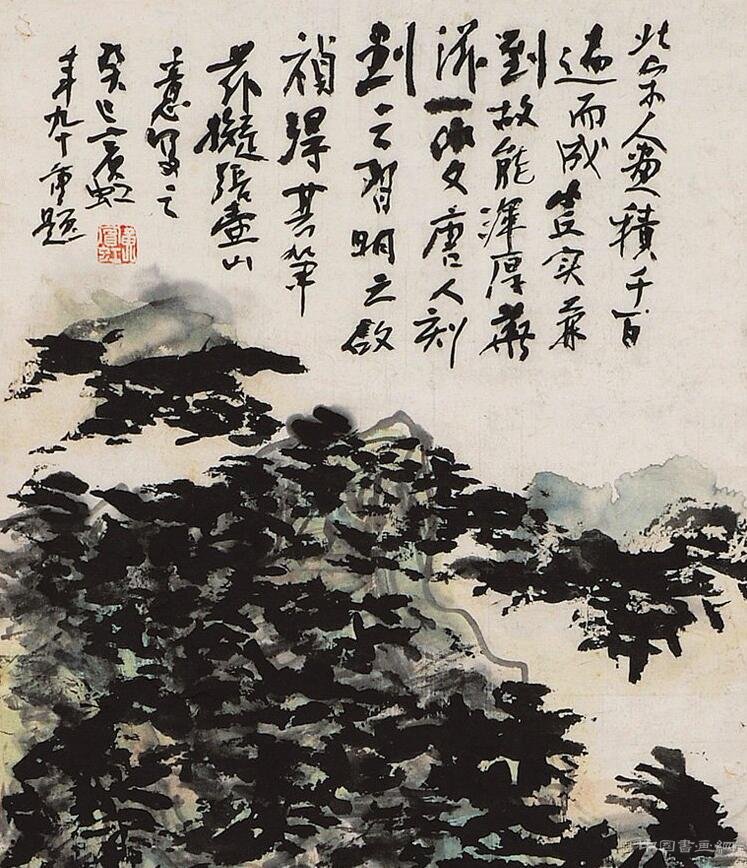 北宋人畫積千百
遍而成虛實兼
到故能渾厚華
滋一變唐人刻
劃之習明之啟
禎得其筆
茲擬張壺山
意寫之
癸巳賓虹
年九十重題
黃賓虹